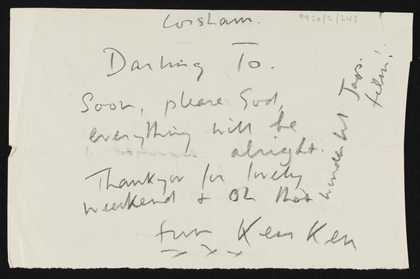 Corsham.
9920/2/243
Darling To.
Soon, please God,
everything will be
alright.
Thankyou for lovely
weekend & Oh that
wonderful Japs.
film!
from Ken Ken
x x x